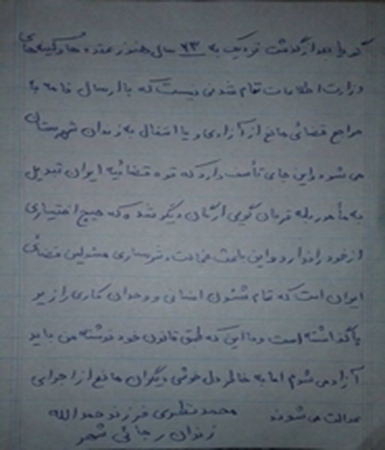 گویا بعد از گذشت نزدیک به ۲۳ سال هنوز عقده‌ها و کینه‌های
وزارت اطلاعات تمام شدنی نیست که با ارسال نامه به
مراجع قضائی مانع از آزادی و یا انتقال به زندان شهرستان
می شود و این جای تأسف دارد که قوه قضائیه ایران تبدیل
به مأمور بله قربان گوی ارگان دیگر شده که هیچ اختیاری
از خود را ندارد و این باعث خجالت و شرمساری مسئولین قضائی
ایران است که تمام شئون انسانی و وجدان کاری را زیر
پا گذاشته است و با این که طبق قانون خود نوشته من باید
آزاد می شوم اما به خاطر دل خوشی دیگران مانع از اجرای
عدالت می شوند محمد نظری فرزند حمدالله
زندان رجائی شهر